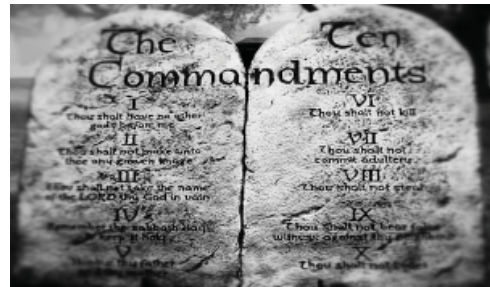 The Ten
Commandments
I
Thou shalt have no other
gods before me
II
Thou shalt not make unto
thee any graven image
III
Thou shalt not take the name
of the LORD thy God in vain
IV
Remember the sabbath day
to keep it holy
V
thy father
VI
Thou shalt not kill
VII
Thou shalt not
commit adultery
VIII
Thou shalt not steal
IX
Thou shalt not bear false
witness against thy
X
Thou shalt not